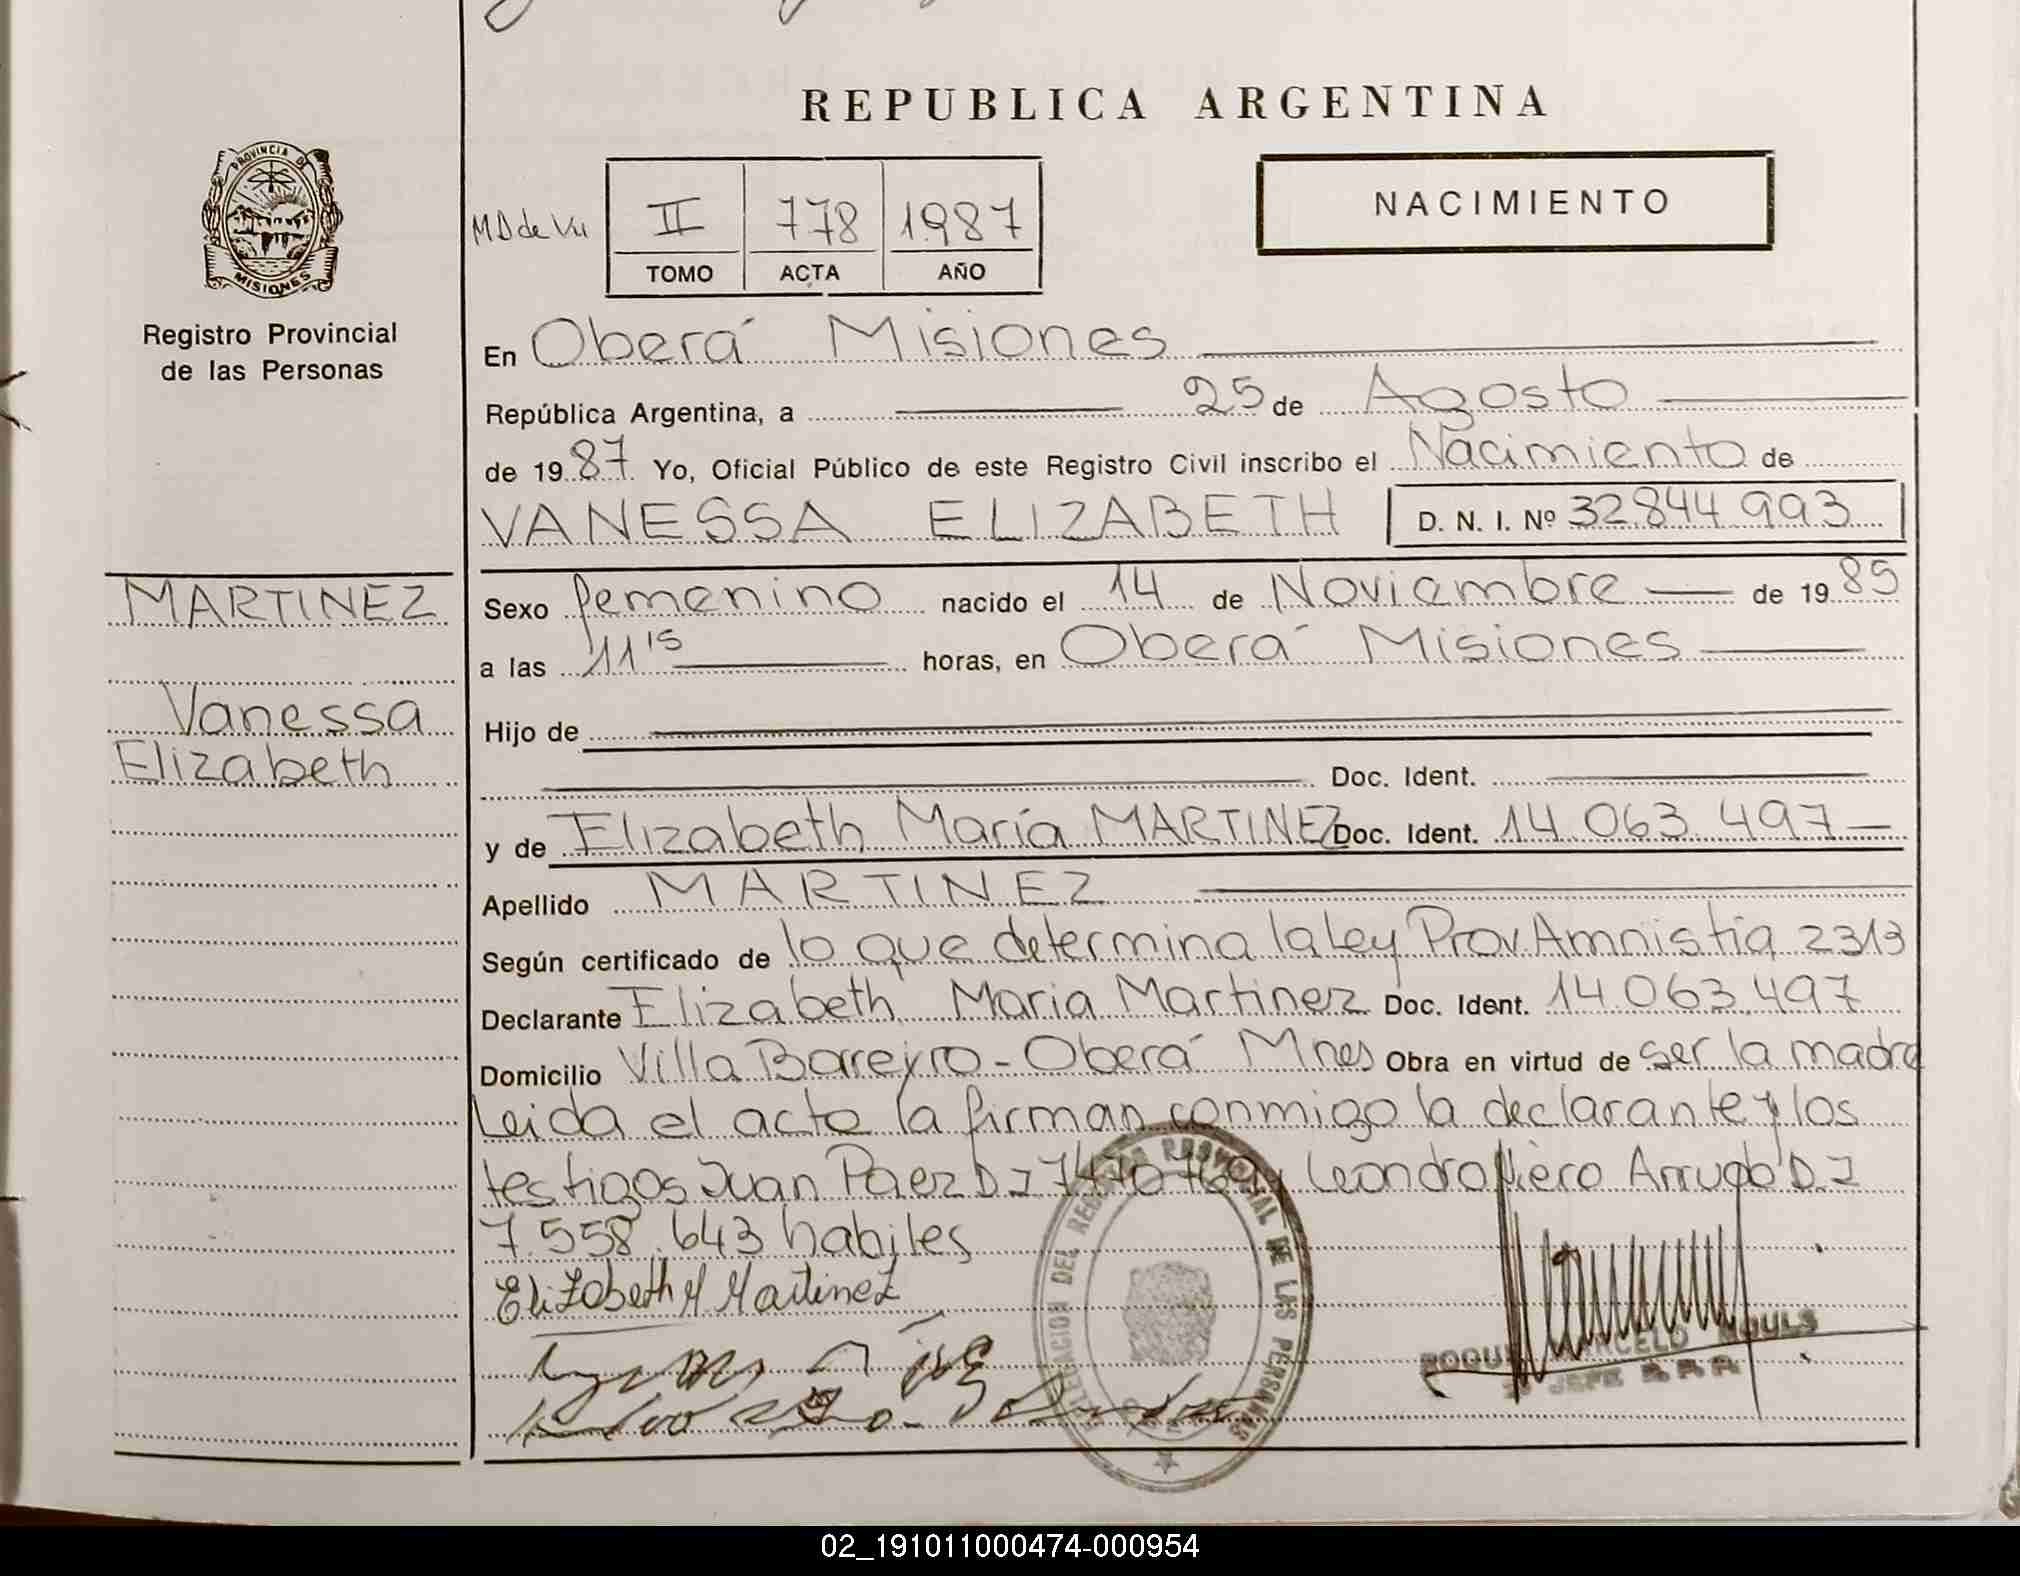 REPUBLICA ARGENTINA
PROVINCIA DE
MISIONES
Registro Provincial
de las Personas
MD de Vu
II 778 1987
TOMO ACTA AÑO
NACIMIENTO
En Oberá Misiones
República Argentina, a 25 de Agosto
de 1987 Yo, Oficial Público de este Registro Civil inscribo el Nacimiento de
VANESSA ELIZABETH D. N. I. Nº 32844993
MARTINEZ
Vanessa
Elizabeth
Sexo femenino nacido el 14 de Noviembre de 1985
a las 11 15 horas, en Oberá Misiones
Hijo de
Doc. Ident.
y de Elizabeth María MARTINEZ Doc. Ident. 14 063 497
Apellido MARTINEZ
Según certificado de lo que determina la Ley Prov. Amnistía 2313
Declarante Elizabeth Maria Martinez Doc. Ident. 14.063.497
Domicilio Villa Barreyro - Oberá Mnes Obra en virtud de ser la madre
Leida el acta la firman conmigo la declarante y los
testigos Juan Paez D I 7470769 y Leandro Piero Arrugo D. I
7.558.643 habiles
Elizabeth M Martinez
DELEGACION DEL REGISTRO PROVINCIAL DE LAS PERSONAS
ROQUE MARCELO
JEFE R.P.P.
02_191011000474-000954